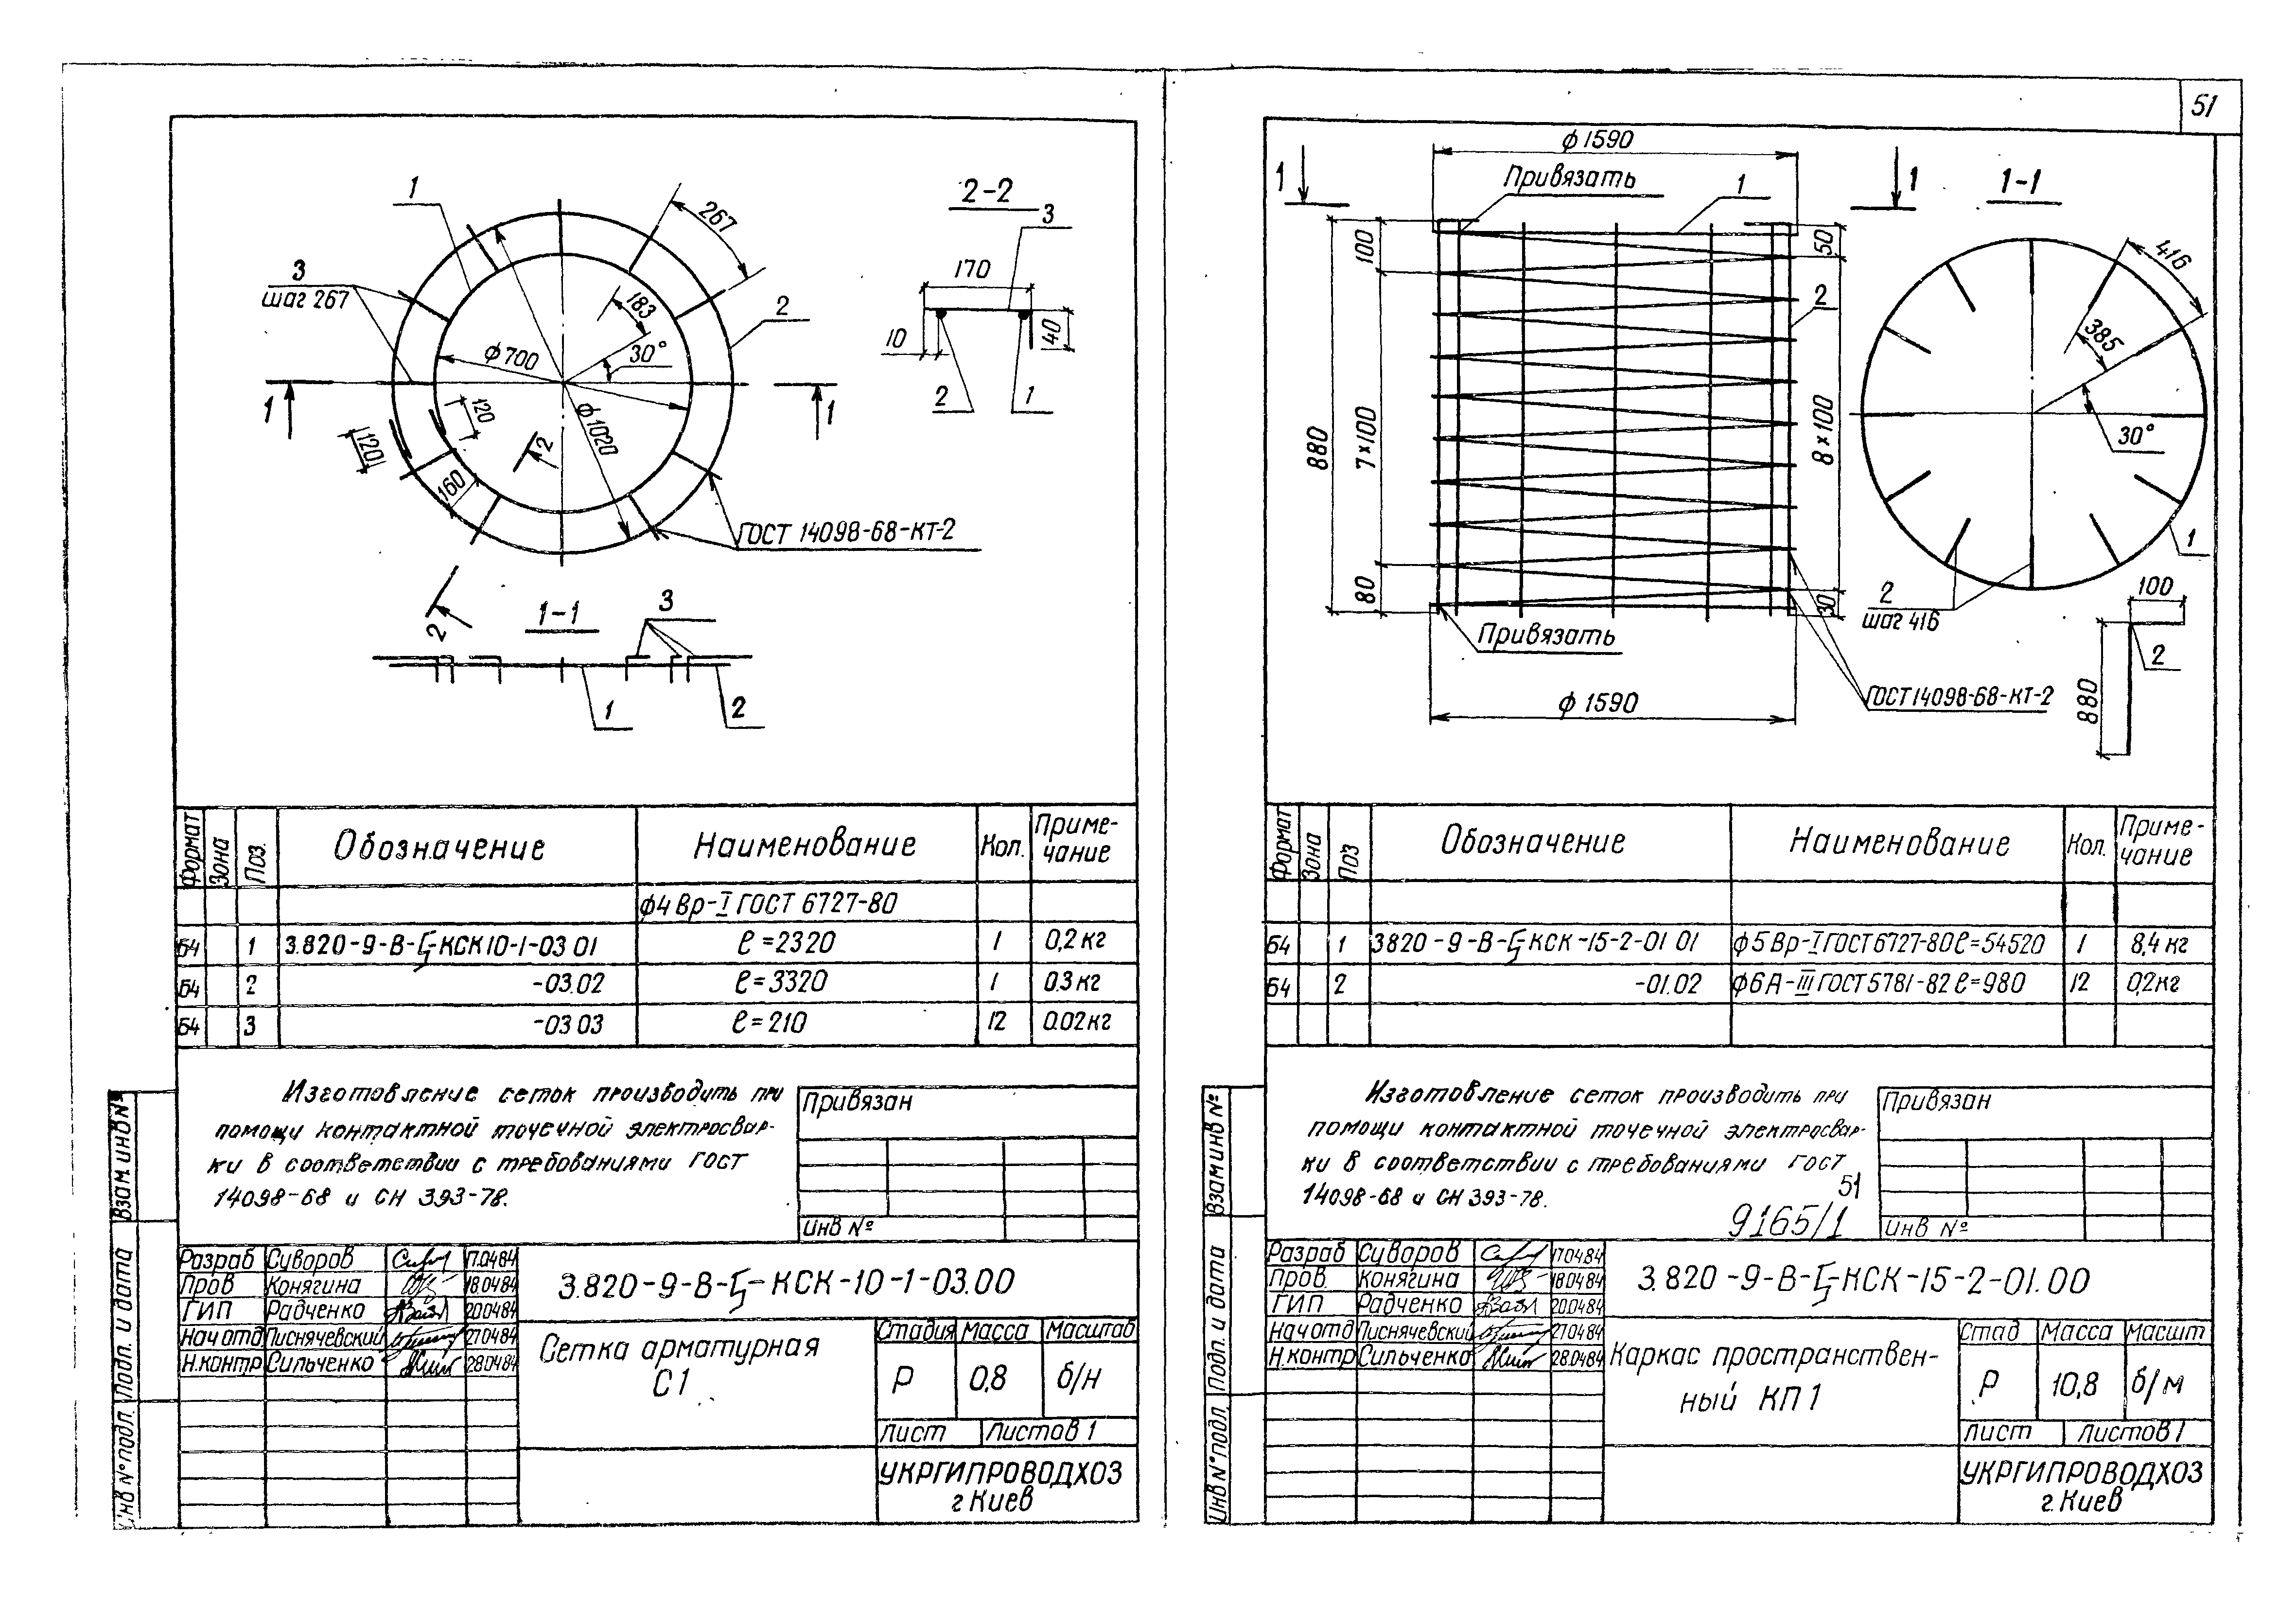 51
1
2-2
3
267
3
шаг 267
170
183
2
10
40
ф700
30°
2
1
1
1
120
ф1020
120
2
160
ГОСТ 14098-68-КТ-2
2
1-1
3
1
2
Формат
Зона
Поз.
Обозначение
Наименование
Кол.
Приме-
чание
ф4 Вр-I ГОСТ 6727-80
Б4 1 3.820-9-В-Б-КСК10-1-03 01 ℓ=2320 1 0,2 кг
Б4 2 -03.02 ℓ=3320 1 0.3 кг
Б4 3 -03 03 ℓ=210 12 0.02 кг
Изготовление сеток производить при
помощи контактной точечной электросвар-
ки в соответствии с требованиями ГОСТ
14098-68 и СН 393-78.
Привязан
Инв №
Взам. инв №
Подп. и дата
Инв № подл.
Разраб Суворов 17.0484
Пров Конягина 18.0484
ГИП Радченко 200484
Нач отд Писнячевский 270484
Н.контр Сильченко 28.0484
3.820-9-В-Б-КСК-10-1-03.00
Сетка арматурная
С1
Стадия Масса Масштаб
Р 0,8 б/н
Лист Листов 1
УКРГИПРОВОДХОЗ
г Киев
ф1590
1
Привязать
1
1
1-1
100
50
416
2
385
880
7×100
8×100
30°
1
80
30
2
шаг 416
100
Привязать
2
ГОСТ 14098-68-КТ-2
880
ф 1590
Формат
Зона
Поз
Обозначение
Наименование
Кол.
Приме-
чание
Б4 1 3820-9-В-Б-КСК-15-2-01 01 ф5 Вр-I ГОСТ 6727-80 ℓ=54520 1 8,4 кг
Б4 2 -01.02 ф6А-III ГОСТ 5781-82 ℓ=980 12 0,2 кг
Изготовление сеток производить при
помощи контактной точечной электросвар-
ки в соответствии с требованиями ГОСТ
14098-68 и СН 393-78.
51
9165/1
Привязан
Инв №
Взам инв №
Подп. и дата
Инв № подл
Разраб Суворов 170484
Пров. Конягина 180484
ГИП Радченко 200484
Нач отд Писнячевский 270484
Н.контр Сильченко 28.0484
3.820-9-В-Б-КСК-15-2-01.00
Каркас пространствен-
ный КП 1
Стад Масса Масшт
Р 10,8 б/м
Лист Листов 1
УКРГИПРОВОДХОЗ
г. Киев